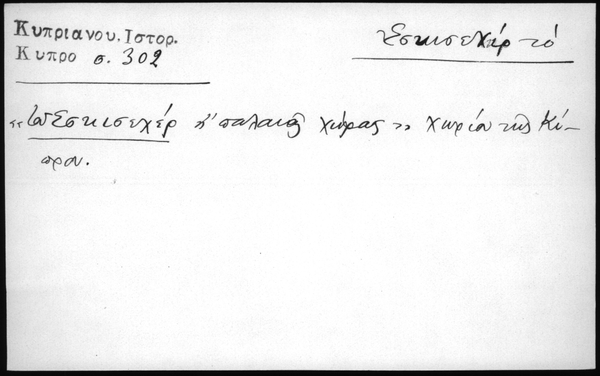 Κυπριανου. Ιστορ.
Κυπρο σ. 302
Ἐσκισεχέρ τὸ
«τοῦ Ἐσκισεχέρ ἢ παλαιᾶς χώρας» χωρίον τῆς Κύ-
πρου.